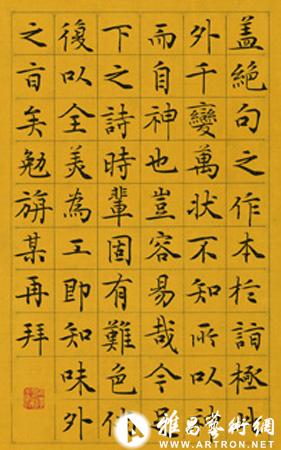 盖絕句之作本於詣極此
外千變萬狀不知所以神
而自神也豈容易哉今足
下之詩時輩固有難色倘
復以全美為工即知味外
之旨矣勉旃某再拜
雅昌藝術網
WWW.ARTRON.NET